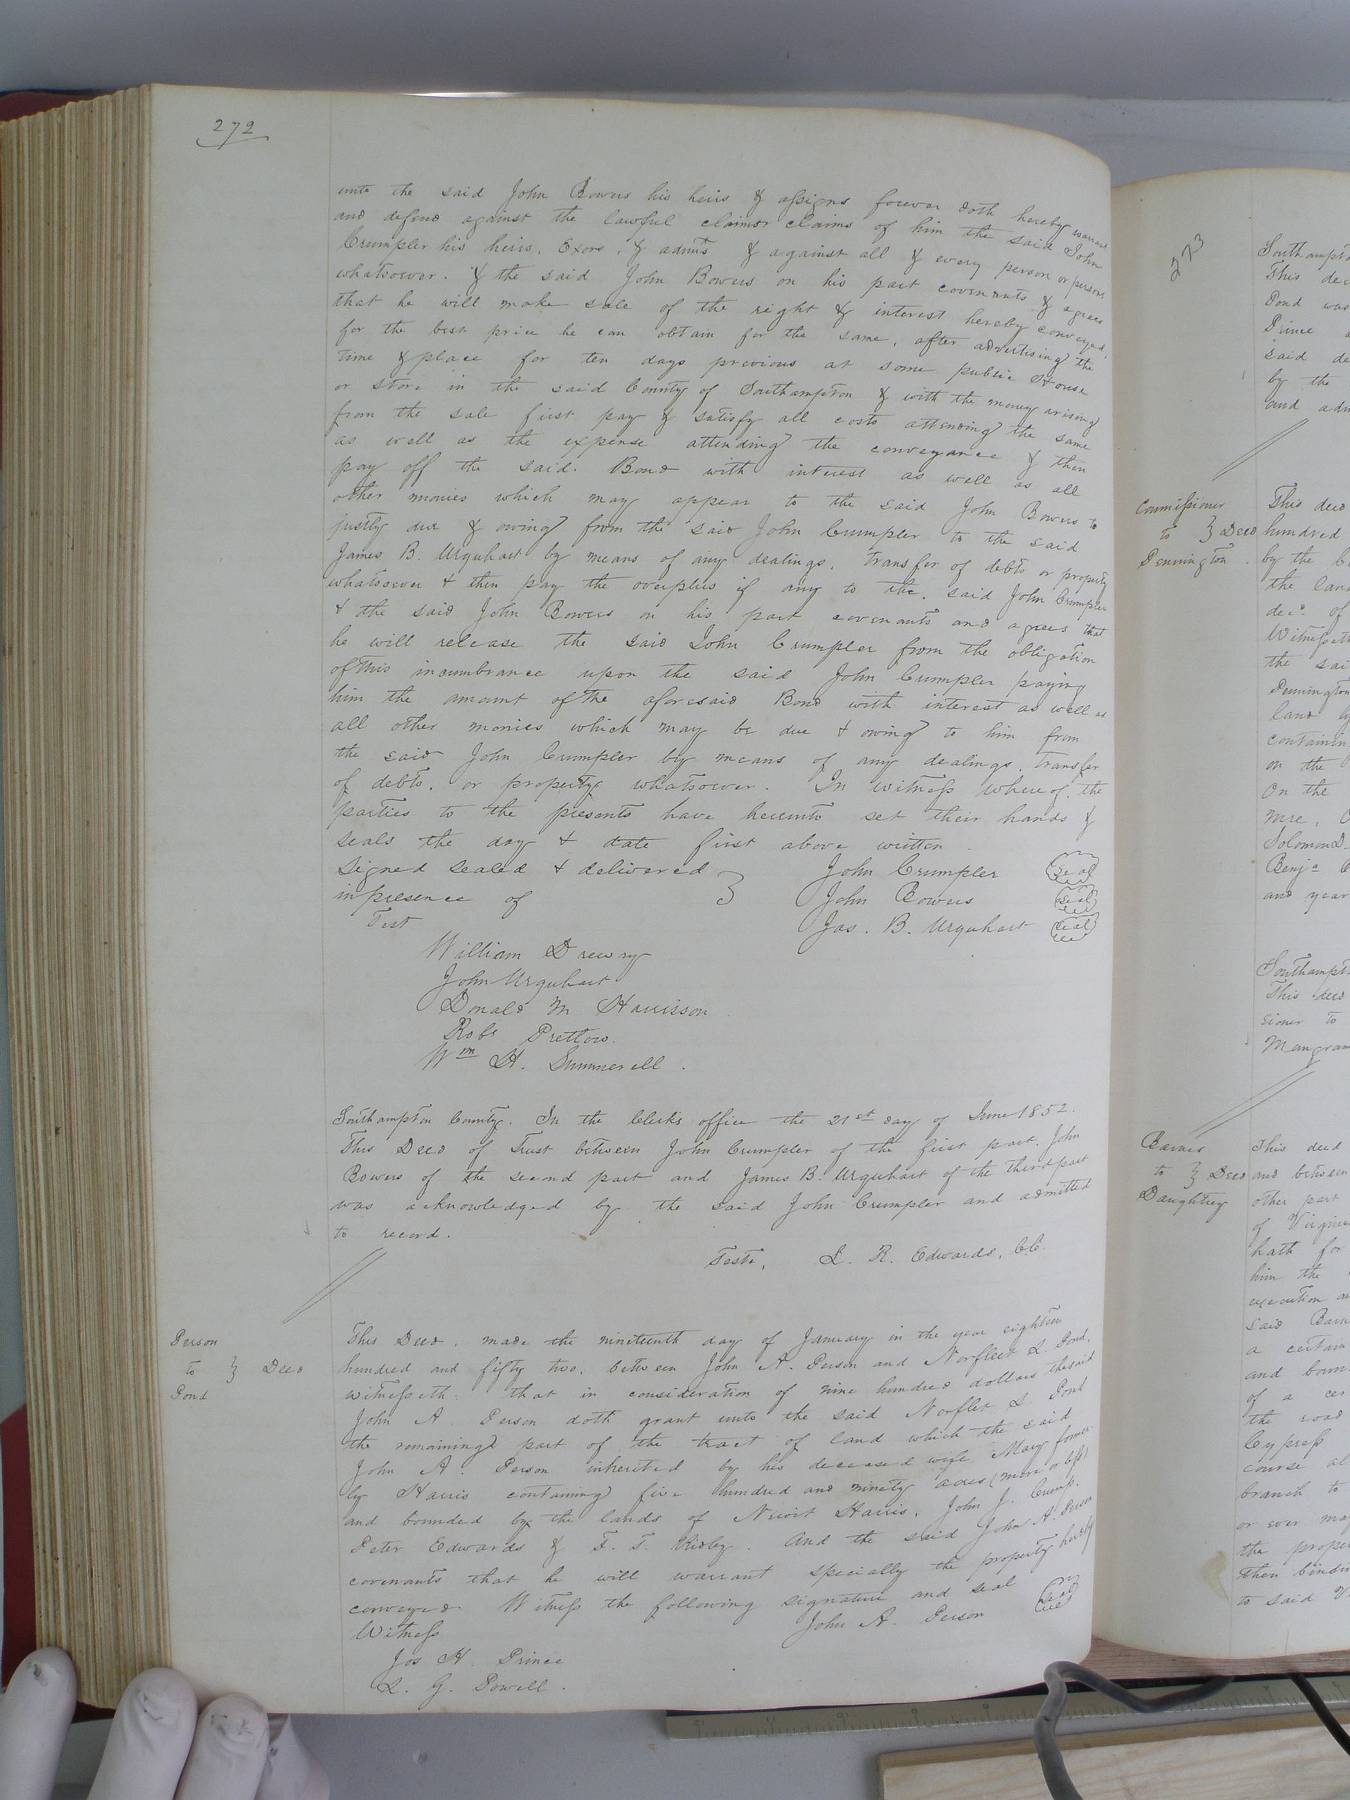 272
unto the said John Bowers his heirs & assigns forever doth hereby warrant
and defend against the lawful claims claims of him the said John
Crumpler his heirs, Exors, & admts & against all & every person or persons
whatsoever. & the said John Bowers on his part covenants & agrees
that he will make sale of the right & interest hereby conveyed,
for the best price he can obtain for the same, after advertising the
time & place for ten days previous at some public House
or store in the said County of Southampton & with the money arising
from the sale first pay & satisfy all costs attending the same
as well as the expense attending the conveyance & then
pay off the said Bond with interest as well as all
other monies which may appear to the said John Bowers to
justly due & owing from the said John Crumpler to the said
James B. Urquhart by means of any dealings, transfer of debts or property
whatsoever & then pay the overplus if any to the said John Crumpler
& the said John Bowers on his part covenants and agrees that
he will release the said John Crumpler from the obligation
of this incumbrance upon the said John Crumpler paying
him the amount of the aforesaid Bond with interest as well as
all other monies which may be due & owing to him from
the said John Crumpler by means of any dealings, transfer
of debts, or property whatsoever. In witness whereof, the
parties to the presents have hereunto set their hands &
seals the day & date first above written
Signed sealed & delivered } John Crumpler Seal
in presence of John Bowers Seal
Test Jas. B. Urquhart Seal
William Drewry
John Urquhart
Donald M Harrison
Robt Pretlow.
Wm H. Summerell.
Southampton County. In the Clerks office the 21st day of June 1852.
This Deed of Trust between John Crumpler of the first part, John
Bowers of the second part and James B. Urquhart of the third part
was acknowledged by the said John Crumpler and admitted
to record.
Teste, L. R. Edwards, C.C.
Person
to } Deed
Pond
This Deed, made the nineteenth day of January in the year eighteen
hundred and fifty two, between John A. Person and Norfleet L. Pond,
witnesseth that in consideration of nine hundred dollars the said
John A Person doth grant unto the said Norflet L Pond
the remaining part of the tract of land which the said
John A. Person inherited by his deceased wife Mary former
by Harris containing five hundred and ninety acres (more or less)
and bounded by the lands of Newit Harris, John J. Crump,
Peter Edwards & F. T. Ridley. And the said John A. Person
covenants that he will warrant specially the property hereby
conveyed. Witness the following signature and seal
Witness John A. Person Seal
Jos H. Prince
L. G. Powell.
273
Southampto
This dee
Pond was
Prince a
said de
by the
and adm
Commissioner
to } Deed
Dennington
This deed
hundred
by the C
the land
decd of
Witnesseth
the sai
Dennington
land ly
containin
on the
On the
mre, O
Solomon D.
Benja B
and year
Southampt
This deed
sioner to
Mangram
Barnes
to } Deed
Daughtrey
This deed
and between
other part
of Virginia
hath for
him the
execution an
said Barn
a certain
and boun
of a cer
the road
Cypress
course al
branch to
or ever may
the proper
then bindin
to said